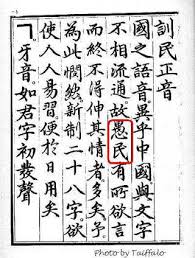 訓民正音
國之語音異乎中國與文字
不相流通故愚民有所欲言
而終不得伸其情者多矣予
為此憫然新制二十八字欲
使人人易習便於日用矣
ㄱ牙音如君字初發聲
Photo by Taiffalo